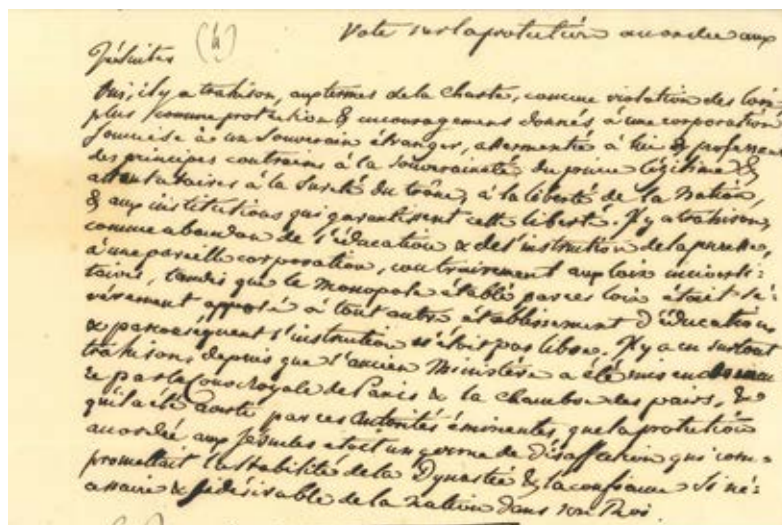 (4) Vote sur la protection accordée aux
Jésuites
Oui, il y a trahison, aux termes de la Charte, comme violation des loix,
plus comme protection & encouragement donnés à une corporation
soumise à un Souverain étranger, assermentée à lui & professant
des principes contraires à la souveraineté du prince légitime &
attentatoires à la sureté du trône, à la liberté de la Nation,
& aux institutions qui garantissent cette liberté. Il y a trahison,
comme abandon de l'éducation & de l'instruction de la jeunesse,
à une pareille corporation, contrairement aux loix universi-
taires, tandis que le monopole établi par ces loix était sé-
vèrement opposé à tout autre établissement d'éducation,
& par conséquent l'instruction n'était pas libre. Il y a eu surtout
trahison, depuis que l'ancien Ministère a été mis en demeu-
re par la Cour royale de Paris & la chambre des pairs, &
qu'il a été averti par ces autorités éminentes, que la protection
accordée aux Jésuites etait un germe de désaffection qui com-
promettait la stabilité de la Dynastie & la confiance si né-
cessaire & si désirable de la nation dans son Roi.